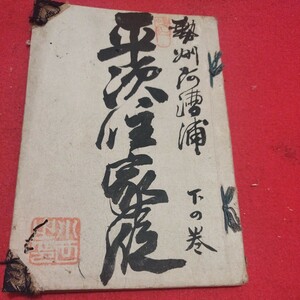 勢州阿漕浦
平次住家段
下の巻